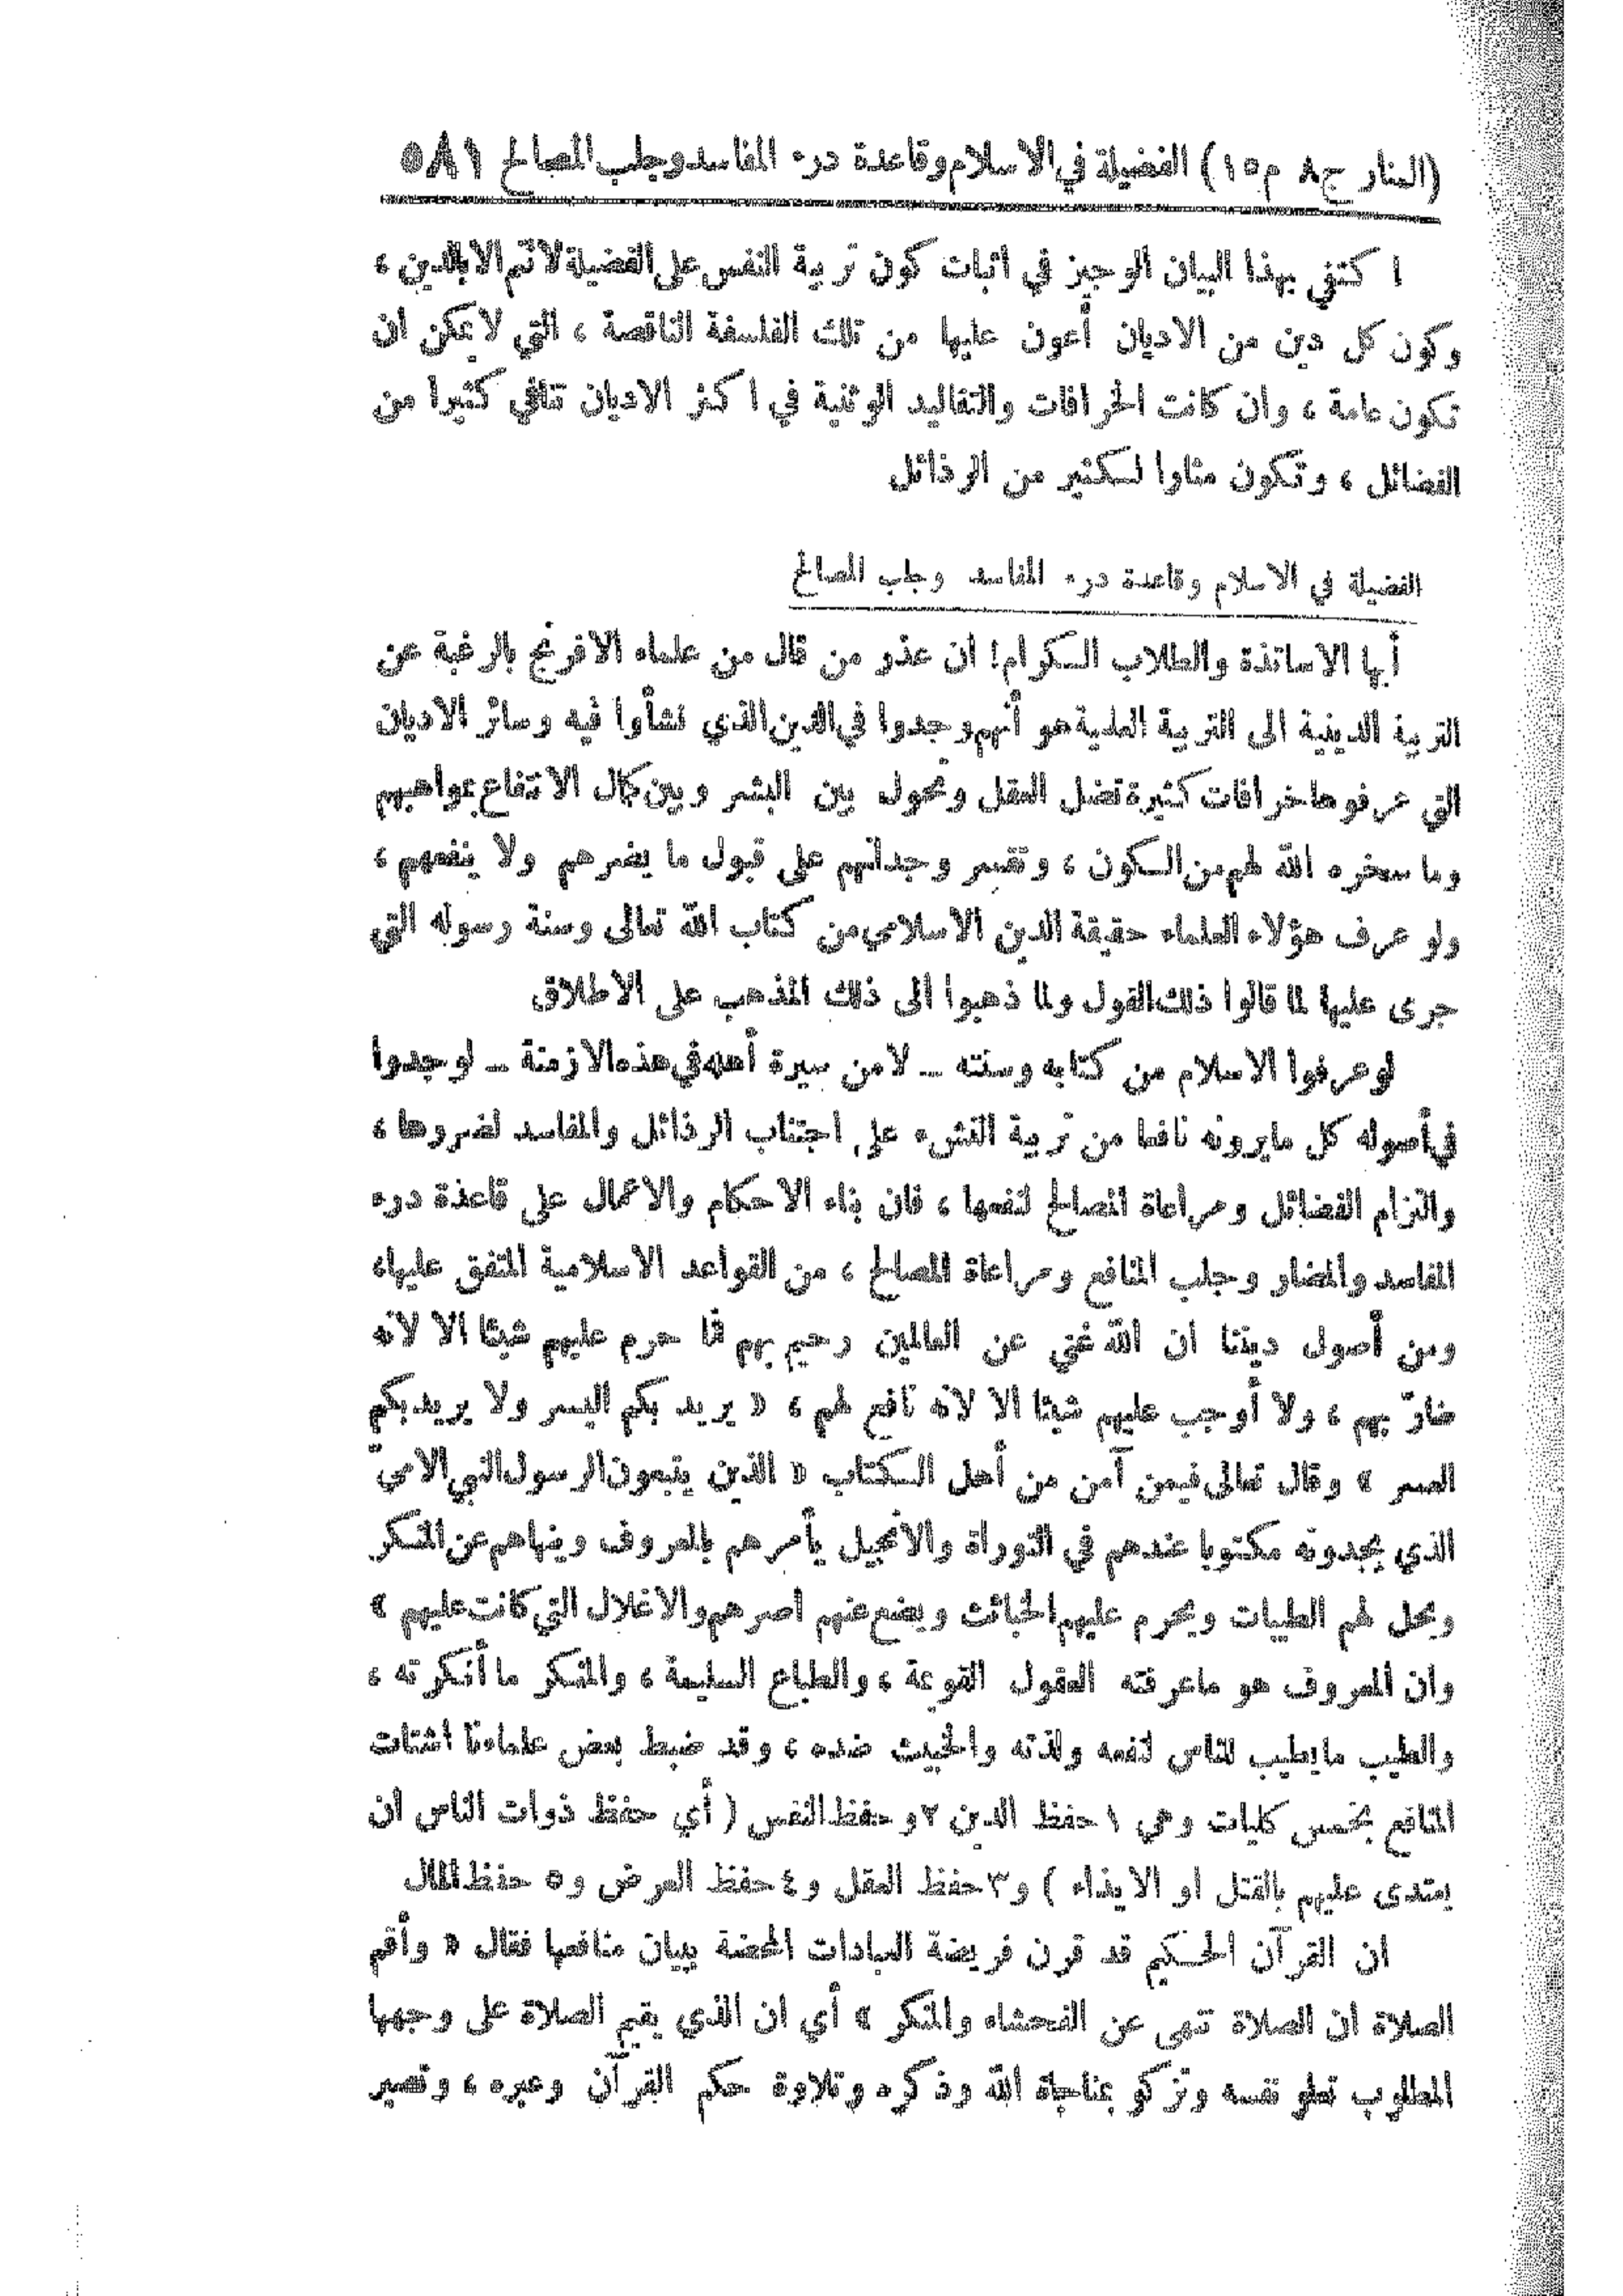 (المنار ج٨ م١٥) الفضيلة في الاسلام وقاعدة درء المفاسد وجلب المصالح ٥٨١
اكتفي بهذا البيان الوجيز في اثبات كون تربية النفس على الفضيلة لا تتم الا بالدين ،
وكون كل دين من الاديان أعون عليها من تلك الفلسفة الناقصة ، التي لا يمكن ان
تكون عامة ، وان كانت الخرافات والتقاليد الوثنية في اكثر الاديان تنافي كثيرا من
الفضائل ، وتكون مثارا لكثير من الرذائل
الفضيلة في الاسلام وقاعدة درء المفاسد وجلب المصالح
أيها الاساتذة والطلاب الكرام! ان عذر من قال من علماء الافرنج بالرغبة عن
التربية الدينية الى التربية العلمية هو أنهم وجدوا في الدين الذي نشأوا فيه وسائر الاديان
التي عرفوها خرافات كثيرة تضل العقل وتحول بين البشر وبين كمال الانتفاع بمواهبهم
وما سخره الله لهم من الكون ، وتقسر وجدانهم على قبول ما يضرهم ولا ينفعهم ،
ولو عرف هؤلاء العلماء حقيقة الدين الاسلامي من كتاب الله تعالى وسنة رسوله التي
جرى عليها لما قالوا ذلك القول ولما ذهبوا الى ذلك المذهب على الاطلاق
لو عرفوا الاسلام من كتابه وسنته – لا من سيرة أهله في هذه الازمنة – لوجدوا
في أصوله كل ما يرونه نافعا من تربية النشء على اجتناب الرذائل والمفاسد لضررها ،
والتزام الفضائل ومراعاة المصالح لنفعها ، فان بناء الاحكام والاعمال على قاعدة درء
المفاسد والمضار وجلب المنافع ومراعاة المصالح ، من القواعد الاسلامية المتفق عليها،
ومن أصول ديننا ان الله غني عن العالمين رحيم بهم فما حرم عليهم شيئا الا لانه
ضارّ بهم ، ولا أوجب عليهم شيئا الا لانه نافع لهم ، « يريد بكم اليسر ولا يريد بكم
العسر » وقال تعالى فيمن آمن من أهل الكتاب « الذين يتبعون الرسول النبي الاميّ
الذي يجدونه مكتوبا عندهم في التوراة والانجيل يأمرهم بالمعروف وينهاهم عن المنكر
ويحل لهم الطيبات ويحرم عليهم الخبائث ويضع عنهم اصرهم والاغلال التي كانت عليهم »
وان المعروف هو ماعرفته العقول القويمة ، والطباع السليمة ، والمنكر ما أنكرته ،
والطيب مايطيب للناس لنفعه ولذته والخبيث ضده ، وقد ضبط بعض علماءنا اشتات
المنافع بخمس كليات وهي ١ حفظ الدين ٢ و حفظ النفس ( أي حفظ ذوات الناس ان
يعتدى عليهم بالقتل او الايذاء ) و٣ حفظ العقل و٤ حفظ العرض و٥ حفظ المال
ان القرآن الحكيم قد قرن فريضة العبادات المحضة ببيان منافعها فقال « وأقم
الصلاة ان الصلاة تنهى عن الفحشاء والمنكر » أي ان الذي يقيم الصلاة على وجهها
المطلوب تعلو نفسه وتزكو بمناجاة الله وذكره وتلاوة حكم القرآن وعبره ، وتصير